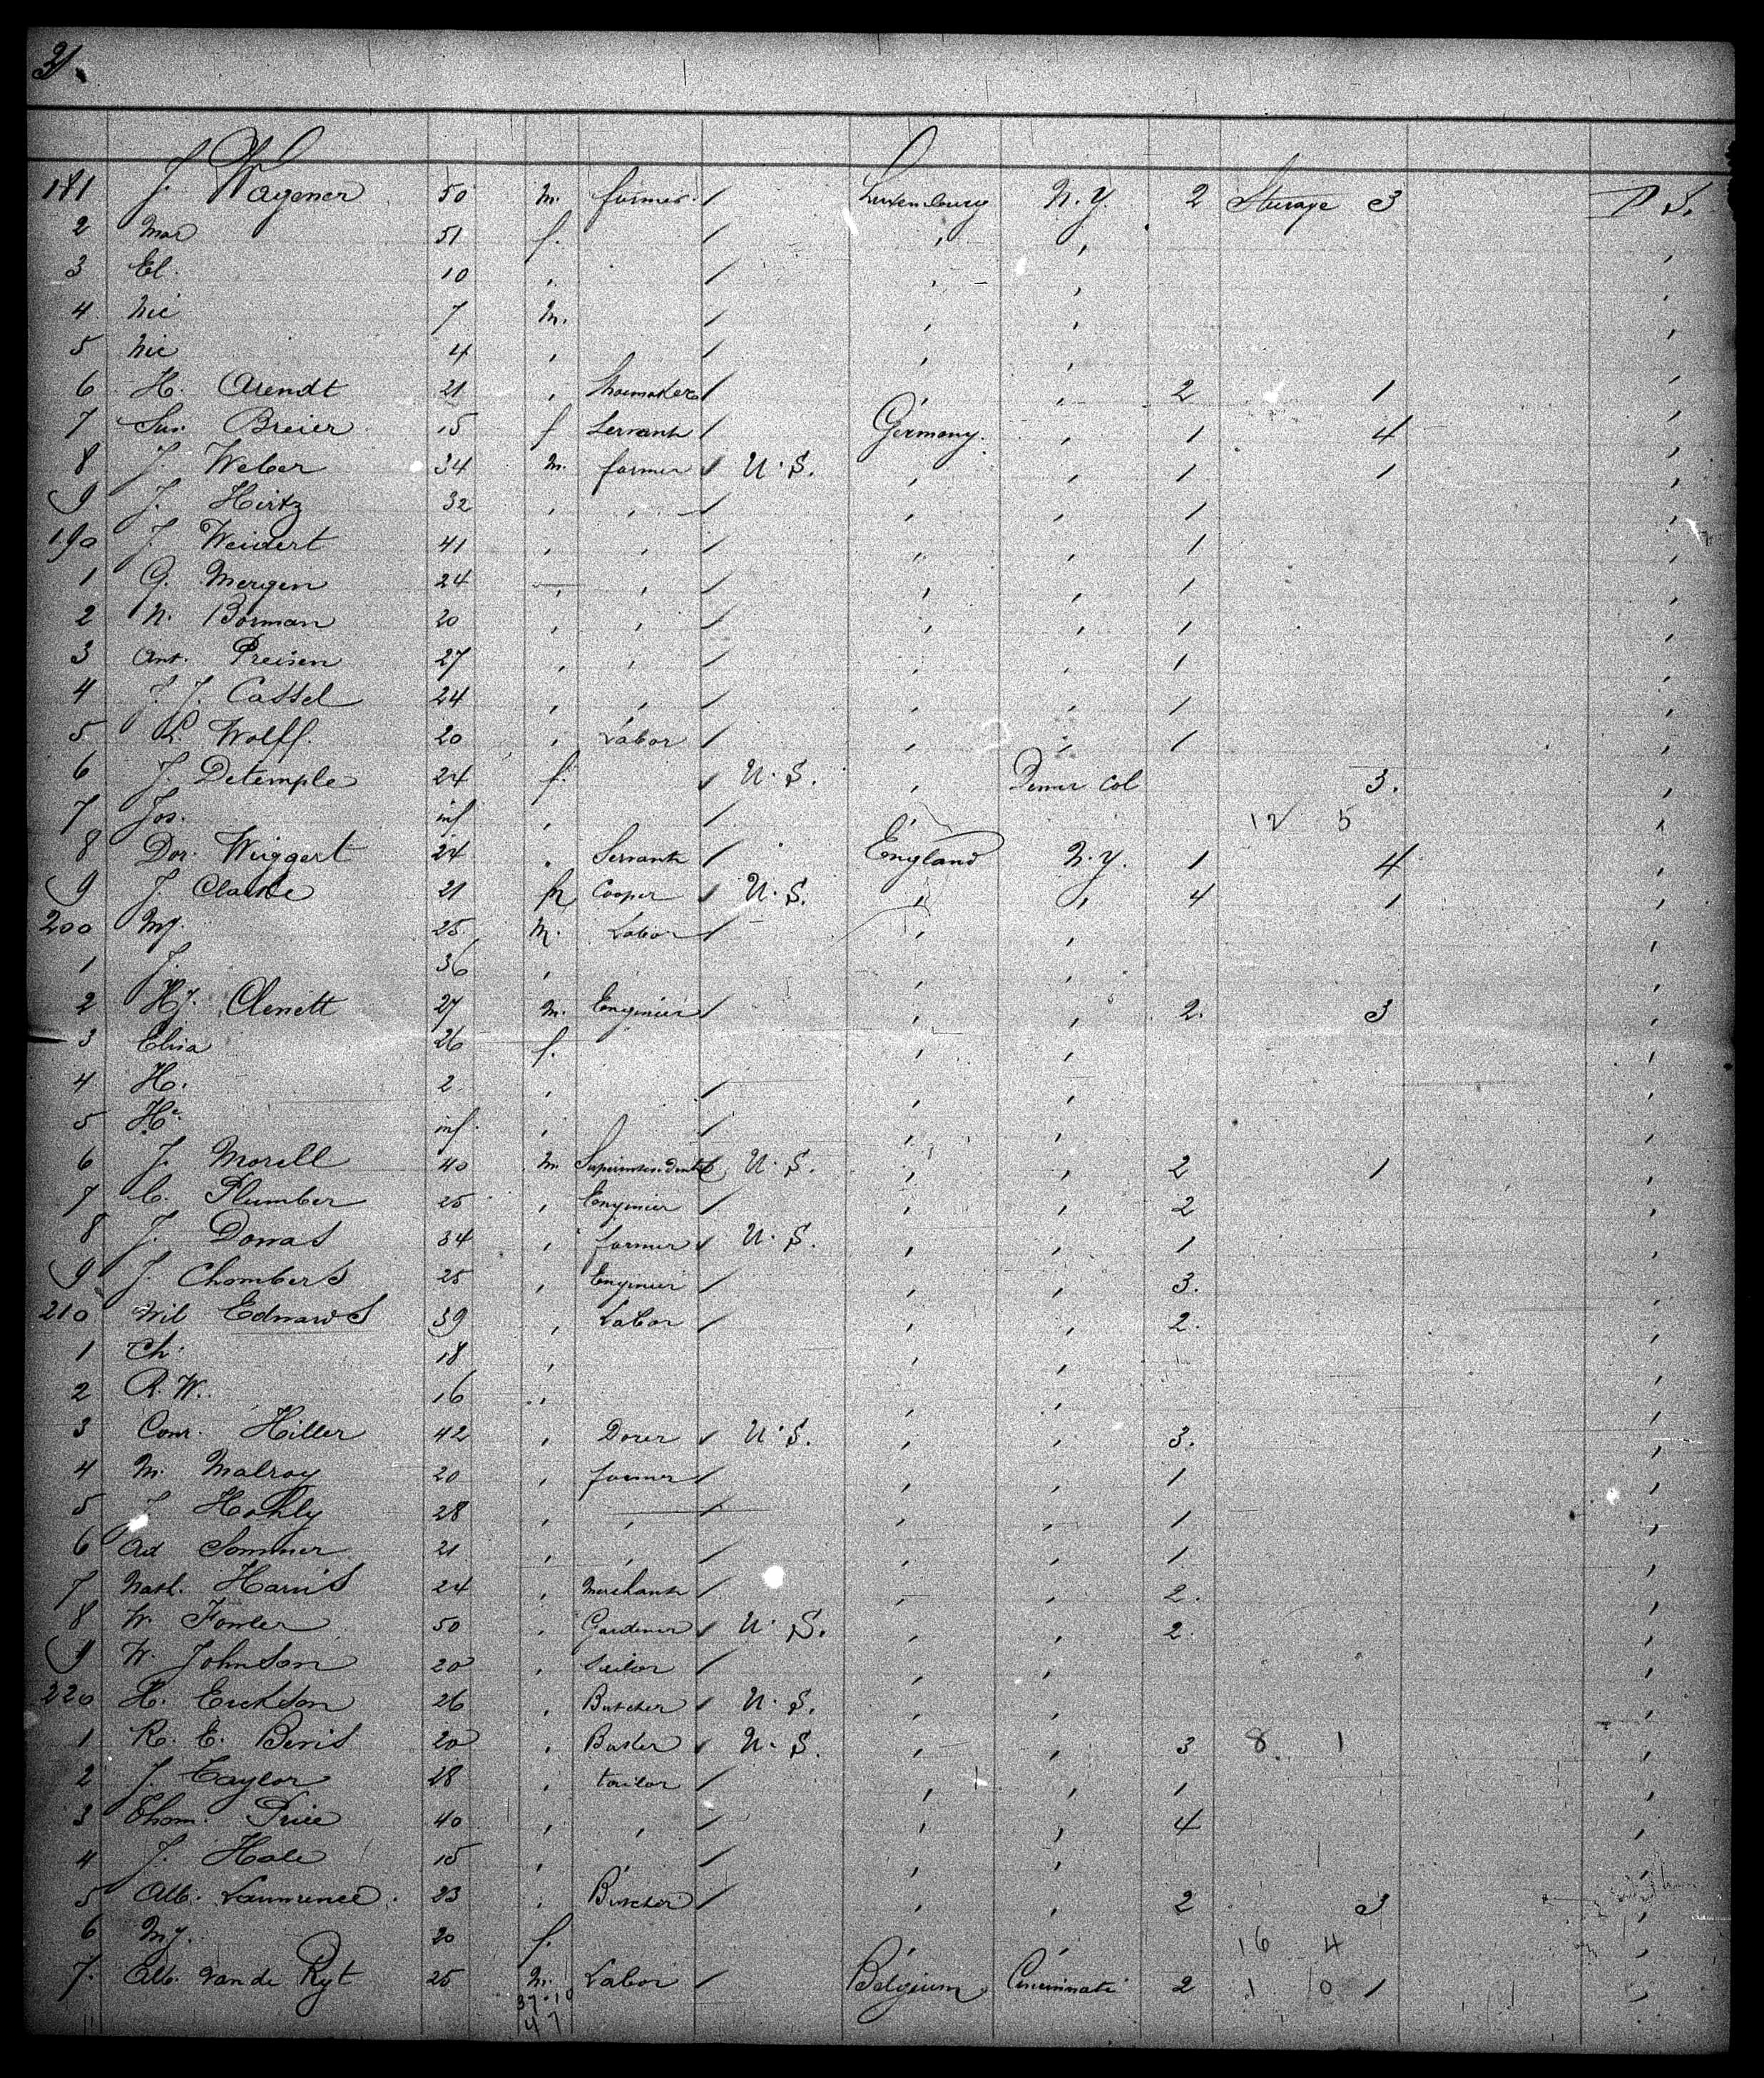 181 J. Wagener 50 m. farmer / Luxemburg N.Y. 2 Sturage 3 P S.
2 Mar 51 f. / , , ,
3 El. 10 , / , , ,
4 Nic 7 m. / , , ,
5 Nic 4 , / , , ,
6 H. Arendt 21 , Shoemaker / , , 2 1 ,
7 Sus. Breier 15 f Servant / Germany. , 1 4 ,
8 J. Weber 34 m. farmer / U.S. , , 1 1 ,
9 J. Hirtz 32 , , / , , 1 ,
190 J. Weidert 41 , , / , , 1 ,
1 G. Mergen 24 , , / , , 1 ,
2 N. Borman 20 , , / , , 1 ,
3 Ant. Preisen 27 , , / , , 1 ,
4 J. J. Cassel 24 , , / , , 1 ,
5 Wolff. 20 , Labor / , , 1 ,
6 J. Detemple 24 f. / U.S. , Denver Col 3. ,
7 Jos. inf , / , 12 5 ,
8 Dor. Wiggert 24 , Servant / England N.Y. 1 4 ,
9 J. Clarke 21 m Cooper / U.S. , , 4 1 ,
200 My. 25 m. Labor / , , ,
1 J. 36 , , , ,
2 HJ. Clenett 27 m. Enginier / , , 2. 3 ,
3 Elisa 26 f. , , ,
4 H. 2 , / , , ,
5 H. inf. , / , , ,
6 J. Morell 40 m. Superintendent U.S. , , 2 1 ,
7 C. Plumber 25 , Enginier / , , 2 ,
8 J. Donas 34 , farmer / U.S. , , 1 ,
9 J. Chambers 25 , Enginier / , , 3. ,
210 Wil Edwards 39 , Labor / , , 2. ,
1 Ch. 18 , , , ,
2 R. W. 16 , , , ,
3 Conr. Hiller 42 , / U.S. , , 3. ,
4 M. Malroy 20 , farmer / , , 1 ,
5 J. Hohly 28 , , / , , 1 ,
6 Ad Sommer 21 , , / , , 1 ,
7 Nath. Harris 24 , Merchant / , , 2. ,
8 W. Fowler 50 , Gardener / U.S. , , 2. ,
9 W. Johnson 20 , / , , ,
220 H. Erickson 26 , Butcher / U.S. , , ,
1 R. E. Bevis 20 , / U.S. , , 3 8 1 ,
2 J. Taylor 28 , tailor / , , 1 ,
3 Thom. Price 40 , , / , , 4 ,
4 J. Hale 15 , , / , , ,
5 Alb. Lawrence. 23 , Butcher / , , 2 3 ,
6 My. 20 f. , , 16 4 ,
7. Alb. van de Ryt 25 m. Labor / Belgium Cincinnati 2 1 0 1 ,
37.10
47